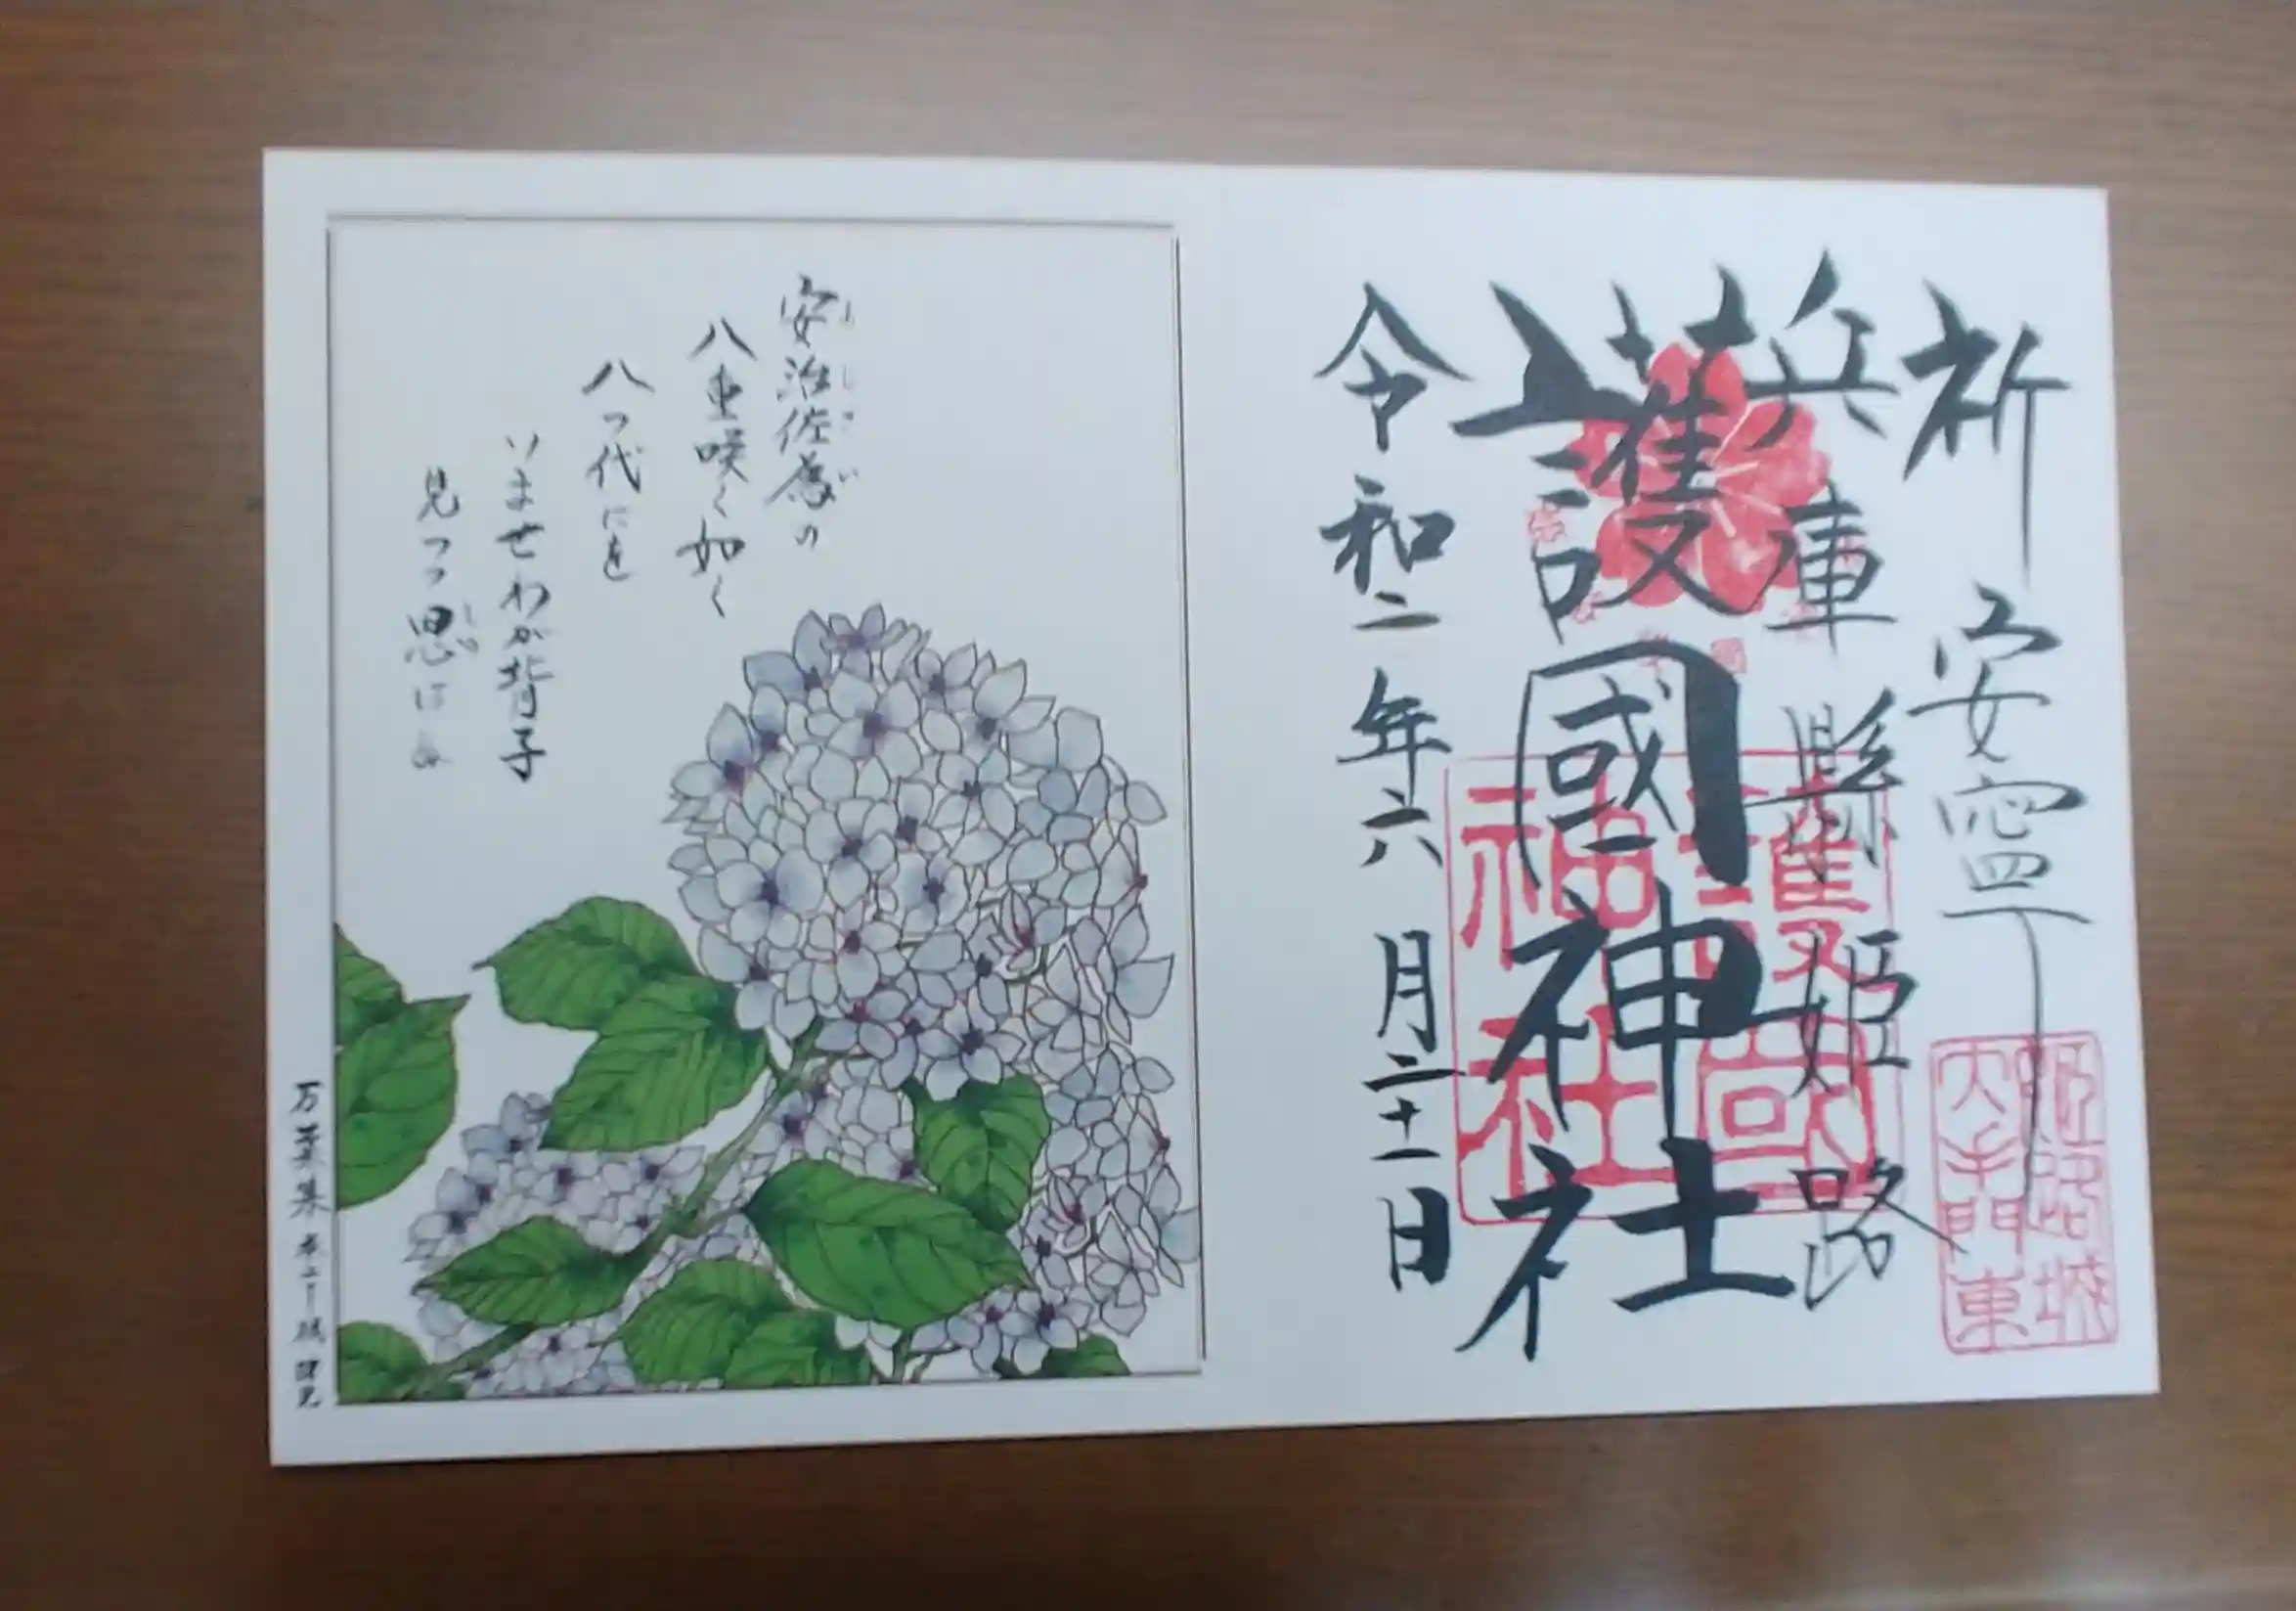 祈 安寧
兵庫縣姫路
護國神社
令和二年六月二十一日
護國
神社
姫路城
大手門東
安治佐為の
八重咲く如く
八つ代にを
いませわが背子
見つつ思はむ
万葉集 巻二十 橘諸兄